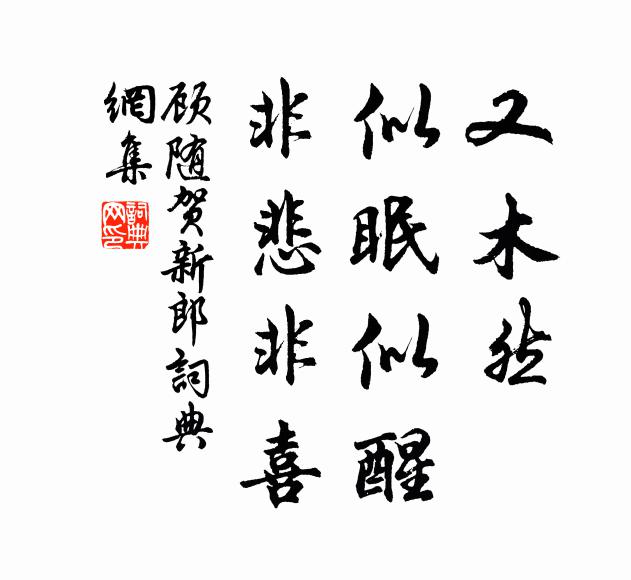 又木然
似眠似醒
非悲非喜
顾随贺新郎詞典
網集
詞典網印